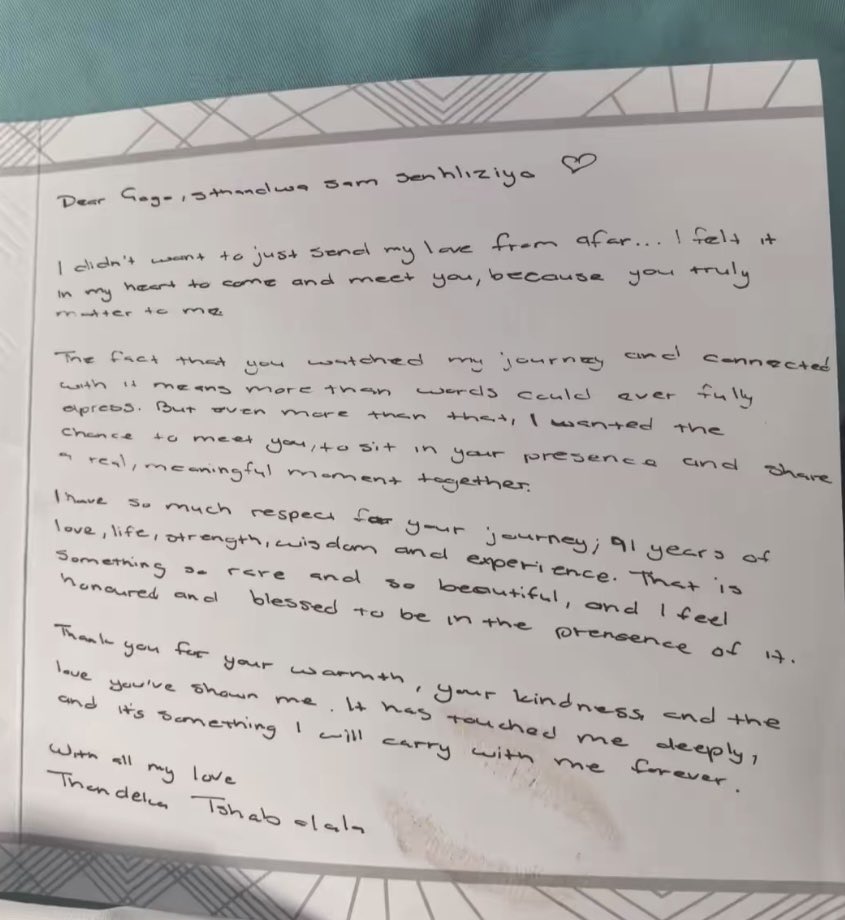 Dear Gogo, sthandwa sam senhliziyo
I didn't want to just send my love from afar... I felt it
in my heart to come and meet you, because you truly
matter to me.
The fact that you watched my journey and connected
with it means more than words could ever fully
express. But even more than that, I wanted the
chance to meet you, to sit in your presence and share
a real, meaningful moment together.
I have so much respect for your journey; 91 years of
love, life, strength, wisdom and experience. That is
something so rare and so beautiful, and I feel
honoured and blessed to be in the prensence of it.
Thank you for your warmth, your kindness, and the
love you've shown me. It has touched me deeply,
and it's something I will carry with me forever.
With all my love
Thandeka Tshabalala